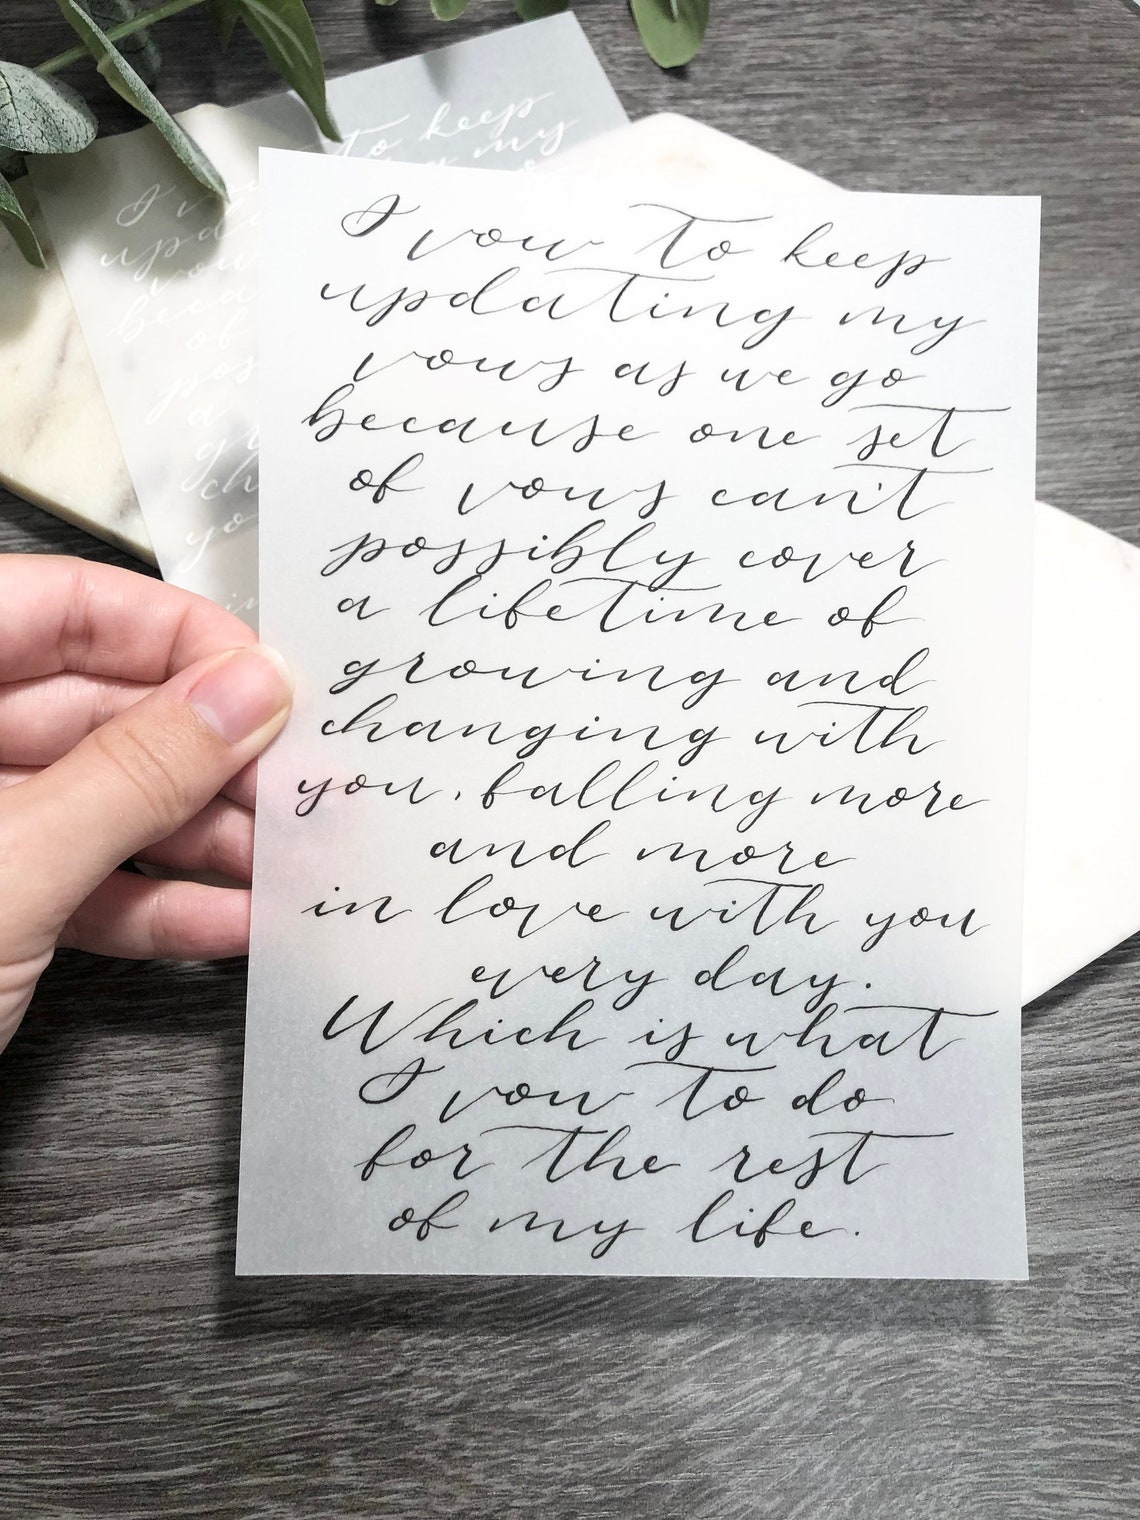 I vow to keep
updating my
vows as we go
because one set
of vows can't
possibly cover
a lifetime of
growing and
changing with
you, falling more
and more
in love with you
every day.
Which is what
I vow to do
for the rest
of my life.
to keep
my
I